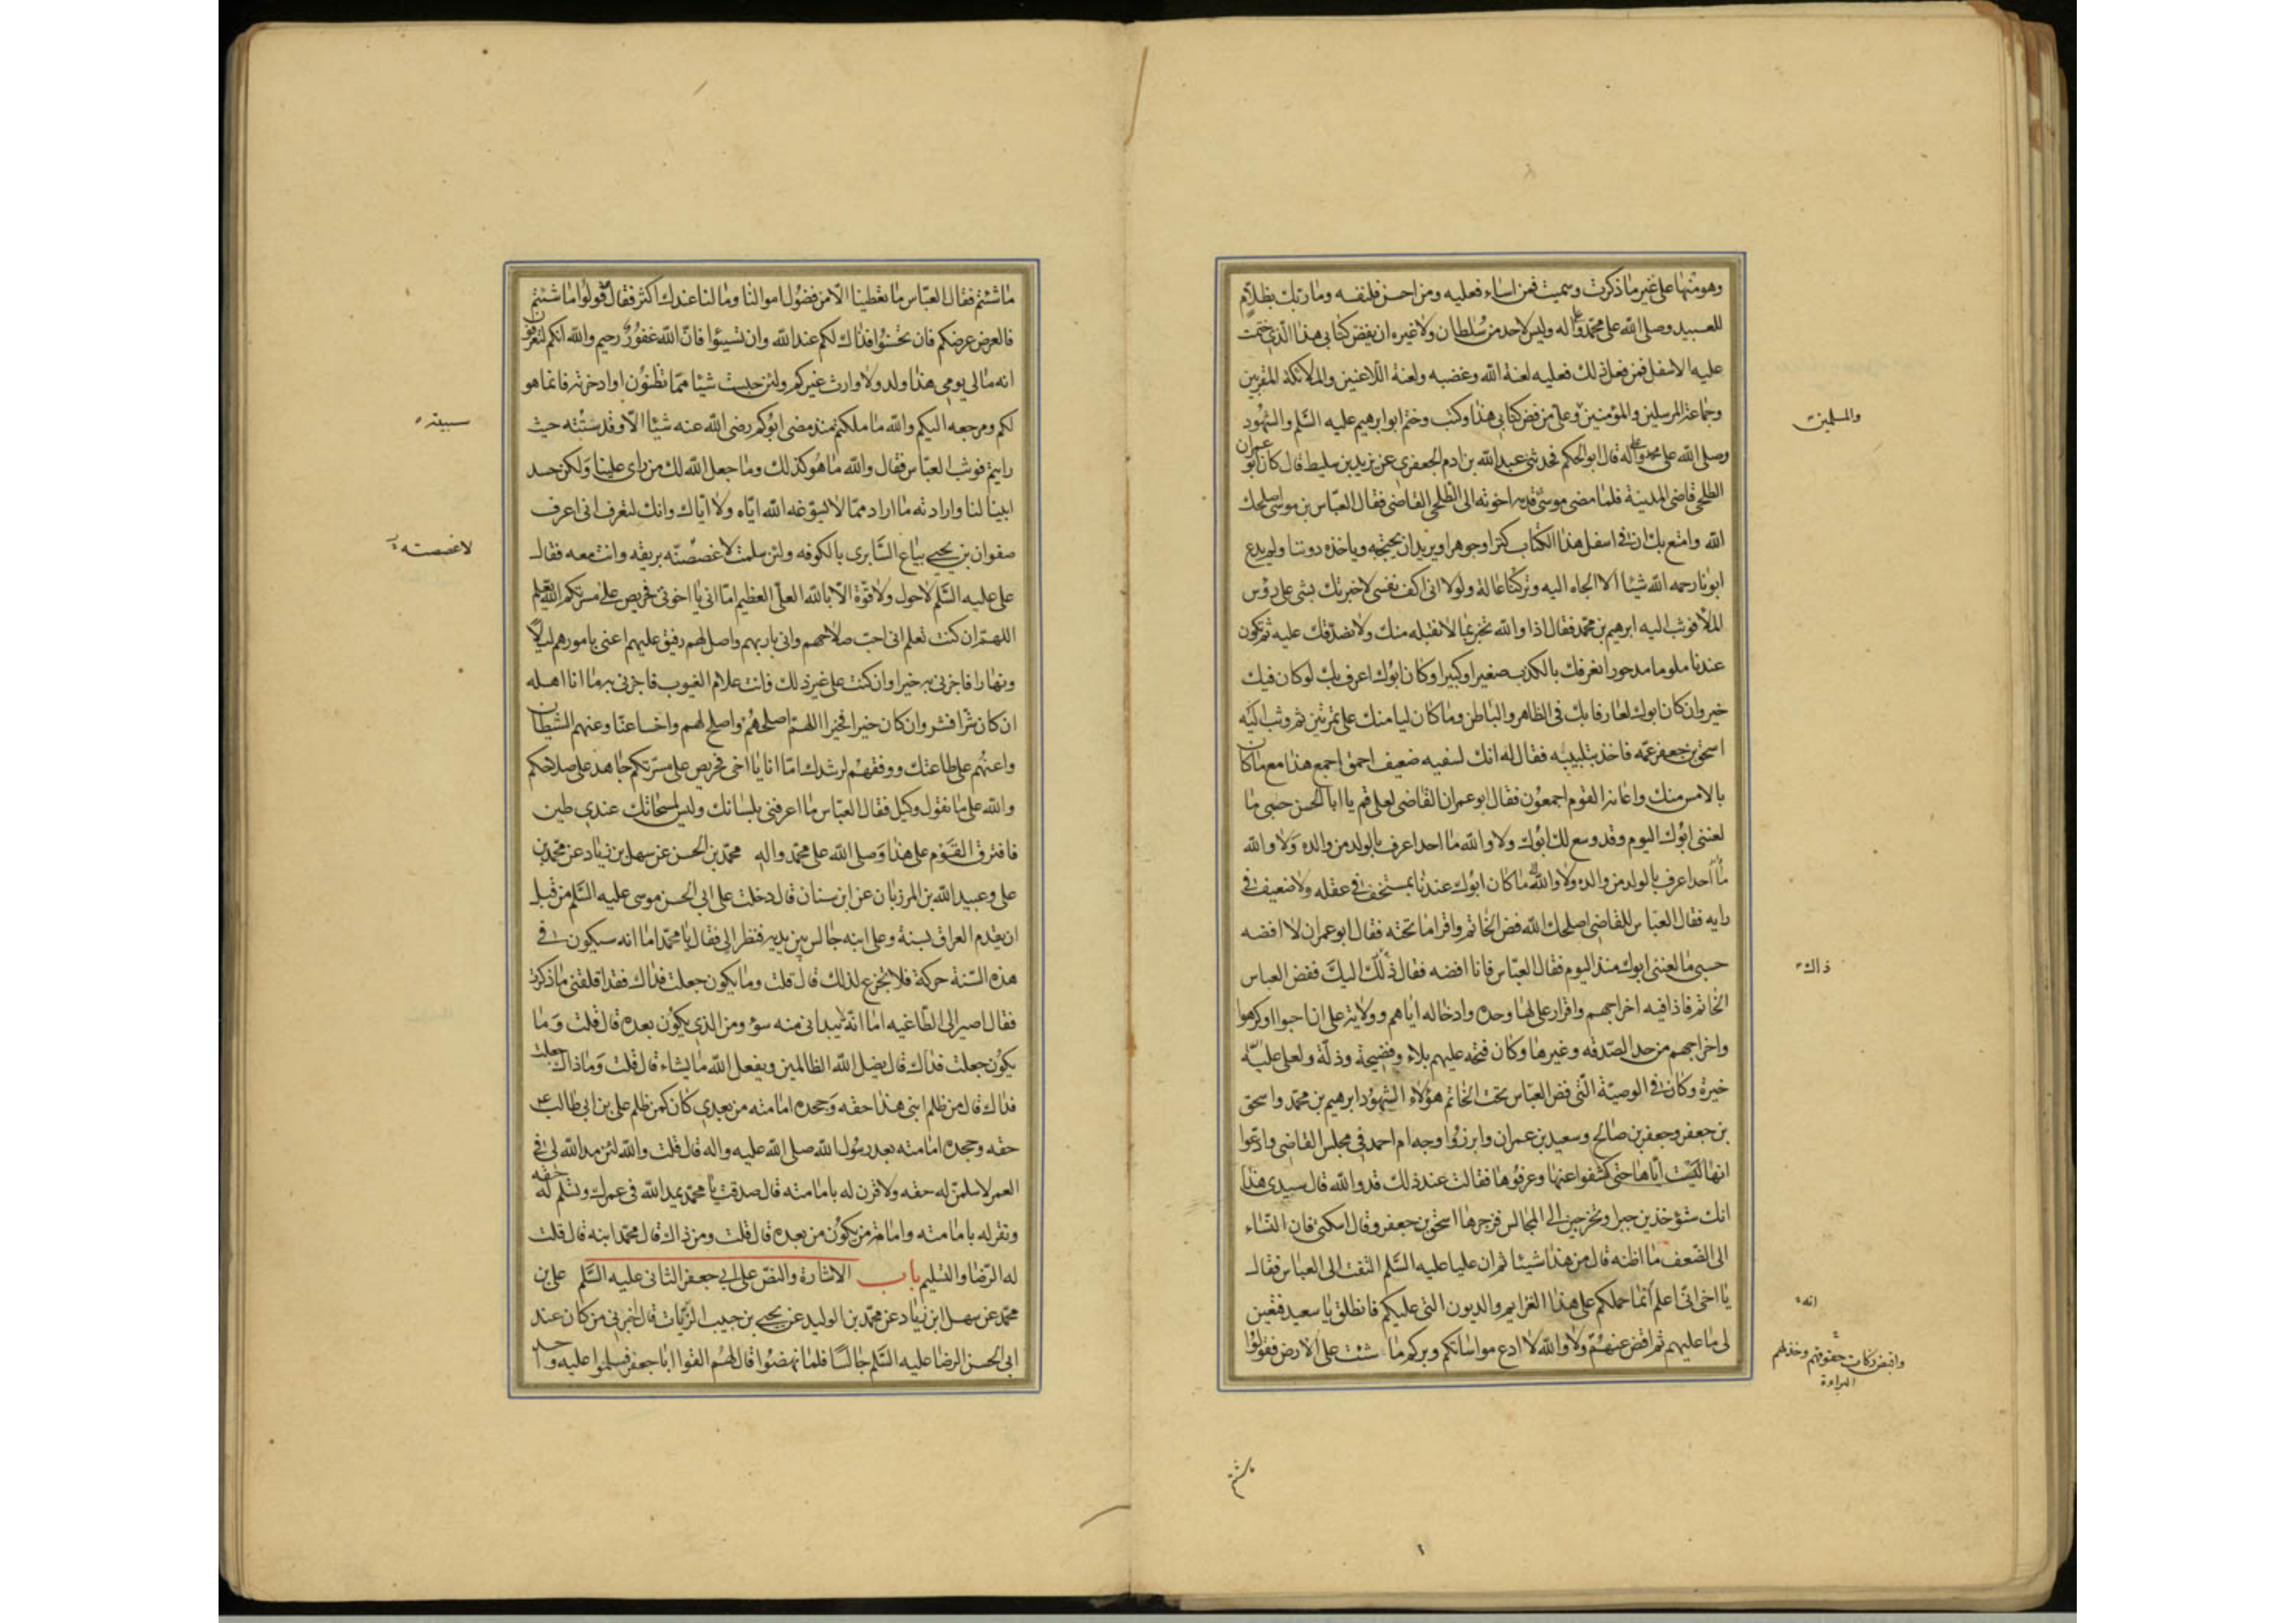 وهو منها على غير ما ذكرت وسميت فمن اساء فعليه ومن احسن فلنفسه وما ربك بظلام
للعبيد وصلى الله على محمد وعلى اله وليس لاحد من سلطان ولا غيره ان يفض كتابى هذا الذى ختمت
عليه الاسفل فمن فعل ذلك فعليه لعنة الله وغضبه ولعنة اللاعنين والملائكة المقربين
وجماعة المرسلين والمؤمنين وعلى من فض كتابى هذا وكتب وختم ابو ابرهيم عليه السلم والشهود
والمسلمين
وصلى الله على محمد وعلى اله قال ابو الحكم فحدثنى عبد الله بن ادم الجعفرى عن يزيد بن سليط قال كان ابو عمران
الطلحى قاضى المدينة فلما مضى موسى قدمه اخوته الى الطلحى القاضى فقال العباس بن موسى اصلحك
الله وامتع بك ان فى اسفل هذا الكتاب كنزا وجوهرا ويريد ان يحتجبه وياخذه دوننا ولم يدع
ابونا رحمه الله شيئا الا الجاه اليه وتركنا عالة ولولا انى اكف نفسى لاخبرتك بشى على رؤس
الملا فوثب اليه ابرهيم بن محمد فقال اذا والله تخبر بما لا نقبله منك ولا نصدقك عليه ثم تكون
عندنا ملوما مدحورا نعرفك بالكذب صغيرا وكبيرا وكان ابوك اعرف بك لو كان فيك
خير وان كان ابوك لعارفا بك فى الظاهر والباطن وما كان ليامنك على تمرتين ثم وثب اليه
اسحق بن جعفر عمه فاخذ بتلبيبه فقال له انك لسفيه ضعيف احمق اجمع هذا مع ما كان
بالامس منك واعانه القوم اجمعون فقال ابو عمران القاضى لعلى قم يا ابا الحسن حسبى ما
لعننى ابوك اليوم وقد وسع لك ابوك ولا والله ما احد اعرف بالولد من والده ولا والله
ما احد اعرف بالولد من والده ولا والله ما كان ابوك عندنا بمستخف فى عقله ولا ضعيف فى
رايه فقال العباس للقاضى اصلحك الله فض الخاتم واقرا ما تحته فقال ابو عمران لا افضه
حسبى ما لعننى ابوك منذ اليوم فقال العباس فانا افضه فقال ذلك اليك ففض العباس
ذاك
الخاتم فاذا فيه اخراجهم واقرار على لها وحده وادخاله اياهم فى ولاية على ان احبوا او كرهوا
واخراجهم من حد الصدقه وغيرها وكان فتحه عليهم بلاء وفضيحة وذلة ولعلى عليه
خيرة وكان فى الوصية التى فض العباس تحت الخاتم هؤلاء الشهود ابرهيم بن محمد واسحق
بن جعفر وجعفر بن صالح وسعيد بن عمران وابرزوا وجه ام احمد فى مجلس القاضى وادعوا
انها ليست اياها حتى كشفوا عنها وعرفوها فقالت عند ذلك قد والله قال سيدى هذا
انك ستؤخذين جبرا وتخرجين الى المجالس فزجرها اسحق بن جعفر وقال اسكتى فان النساء
الى الضعف ما اظنه قال من هذا شيئا ثم ان عليا عليه السلم التفت الى العباس فقال
يا اخى انى اعلم انما حملكم على هذا الغرايم والديون التى عليكم فانطلق يا سعيد فتعين
انه
لى ما عليهم ثم اقض عنهم ولا والله لا ادع مواساتكم وبركم ما شئت على الارض فقولوا
واقبض زكات حقوقهم وخذ لهم
البراءة
ما شئتم
ما شئتم فقال العباس ما تعطينا الا من فضول اموالنا وما لنا عندك اكثر فقال قولوا ما شئتم
فالعرض عرضكم فان تحسنوا فذاك لكم عند الله وان تسيئوا فان الله غفور رحيم والله انكم لتعرفون
انه مالى يومى هذا ولد ولا وارث غيركم ولئن حبست شيئا مما تظنون او ادخرته فانما هو
لكم ومرجعه اليكم والله ما ملكت منذ مضى ابوكم رضى الله عنه شيئا الا وقد سيبته حيث
سيبته
رايتم فوثب العباس فقال والله ما هو كذلك وما جعل الله لك من راى علينا ولكن حسد
ابينا لنا وارادته ما اراد مما لا يسوغه الله اياه ولا اياك وانك لتعرف انى اعرف
صفوان بن يحيى بياع السابرى بالكوفه ولئن سلمت لاغصصنه بريقه وانت معه فقال
لاغصصنه
على عليه السلم لا حول ولا قوة الا بالله العلى العظيم اما انى يا اخوتى فحريص على مسرتكم الله يعلم
اللهم ان كنت تعلم انى احب صلاحهم وانى بار بهم واصل لهم رفيق عليهم اعنى بامورهم ليلا
ونهارا فاجزنى به خيرا وان كنت على غير ذلك فانت علام الغيوب فاجزنى به ما انا اهله
ان كان شرا فشر وان كان خيرا فخيرا اللهم اصلحهم واصلح لهم واخسا عنا وعنهم الشيطان
واعنهم على طاعتك ووفقهم لرشدك اما انا يا اخى فحريص على مسرتكم جاهد على صلاحكم
والله على ما نقول وكيل فقال العباس ما اعرفنى بلسانك وليس لمسحاتك عندى طين
فافترق القوم على هذا وصلى الله على محمد واله محمد بن الحسن عن سهل بن زياد عن محمد بن
على وعبيد الله بن المرزبان عن ابن سنان قال دخلت على ابى الحسن موسى عليه السلم من قبل
ان يقدم العراق بسنة وعلى ابنه جالس بين يديه فنظر الى فقال يا محمد اما انه سيكون فى
هذه السنة حركة فلا تجزع لذلك قال قلت وما يكون جعلت فداك فقد اقلقنى ما ذكرت
فقال اصير الى الطاغيه اما انه لا يبدانى منه سوء ومن الذى يكون بعده قال قلت وما
يكون جعلت فداك قال يضل الله الظالمين ويفعل الله ما يشاء قال قلت وما ذاك جعلت
فداك قال من ظلم ابنى هذا حقه وجحده امامته من بعدى كان كمن ظلم على بن ابى طالب ع
حقه وجحده امامته بعد رسول الله صلى الله عليه واله قال قلت والله لئن مد الله لى فى
العمر لاسلمن له حقه ولاقرن له بامامته قال صدقت يا محمد يمد الله فى عمرك وتسلم له حقه
وتقر له بامامته وامامة من يكون من بعده قال قلت ومن ذاك قال محمد ابنه قال قلت
له الرضا والتسليم باب الاشارة والنص على ابى جعفر الثانى عليه السلم على بن
محمد عن سهل ابن زياد عن محمد بن الوليد عن يحيى بن حبيب الزيات قال اخبرنى من كان عند
ابى الحسن الرضا عليه السلم جالسا فلما نهضوا قال لهم القوا ابا جعفر فسلموا عليه واحد